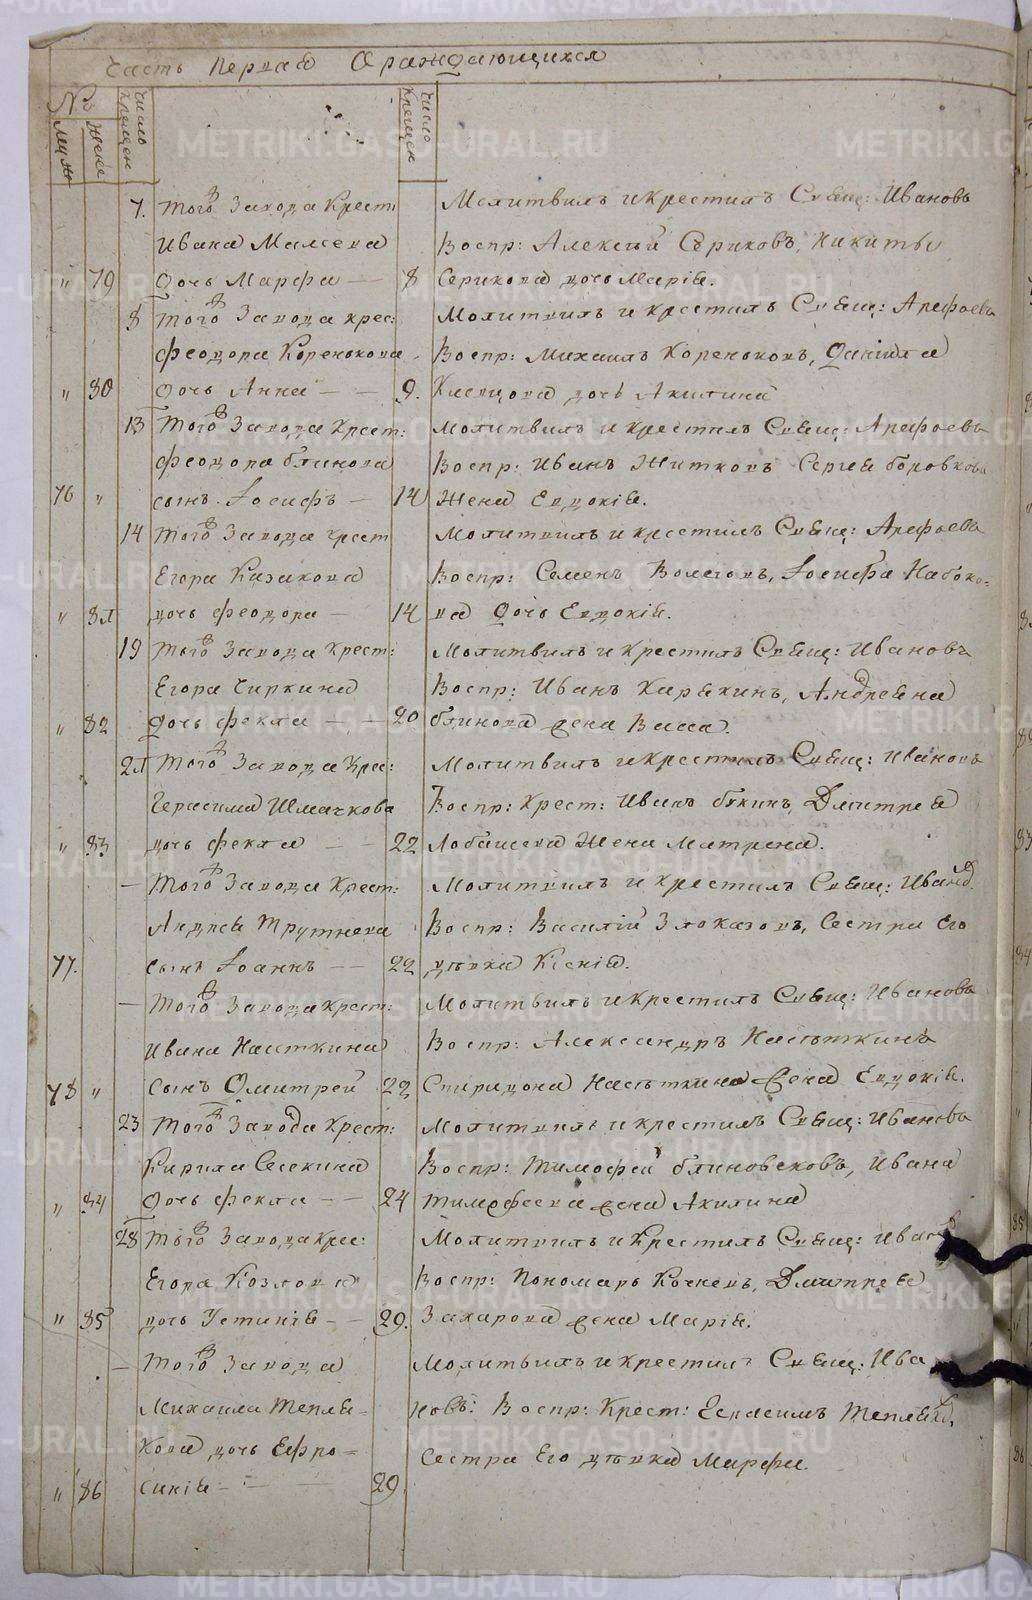 Часть Первая О раждающихся
№
Муж
Жен
Число Крещен
Число Крещен
7. Того Завода Крест Молитвилъ и Крестилъ Священ: Ивановъ
Ивана Воспр: Алексей Сѣриковъ, Никиты
" 79 Дочь Марѳа — 8 Серикова дочь Марія.
8 Того Завода крес: Молитвилъ и крестилъ Священ: Арефьевъ
Феодора Коренькова Воспр: Михаилъ Кореньковъ, Даниила
" 80 Дочь Анна — — 9. дочь Акилина
13 Того Завода Крест: Молитвилъ и крестилъ Священ: Арефьевъ
Феодора блинова Воспр: Иванъ Житковъ Сергея боровкова
76 " сынъ Іосифъ — 14 Жена Евдокія.
14 Того Завода крест Молитвилъ и крестилъ Священ: Арефьевъ
Егора Казакова Воспр: Семенъ Волеговъ, Іосифа Набоко-
" 81 дочь Феодора — 14 ва Дочь Евдокія.
19 Того Завода Крест: Молитвилъ и Крестилъ Священ: Ивановъ
Егора Чиркина Воспр: Иванъ Карякинъ, Андреяна
" 82 Дочь Фекла — — 20 блинова жена Васса.
21 Того Завода Крес: Молитвилъ и крестилъ Священ: Ивановъ
Герасима Шмачкова Воспр: Крест: Иванъ бякинъ, Дмитрея
" 83 дочь Фекла — — 22 Лобашева Жена Матрена.
— Того Завода Крест: Молитвилъ и крестилъ Священ: Иванов
Андрея Трутнева Воспр: Василій Злоказовъ, Сестра Его
77. сынъ Іоаннъ — — 22 дѣвка Ксенія.
— Того Завода Крест: Молитвилъ и Крестилъ Священ: Ивановъ
Ивана Насѣткина Воспр: Александръ Насѣткинъ
78 " Сынъ Дмитрей 22 Спиридона Насѣткина Жена Евдокія.
23 Того Завода Крест: Молитвилъ и крестилъ Священ: Ивановъ
Кирила Сесекина Воспр: Тимофей блиновсковъ, Ивана
" 84 Дочь Фекла — — 24 Тимофеева жена Акилина
28 Того Завода Крес: Молитвилъ и Крестилъ Священ: Иванов
Егора Козлова Воспр: Пономарь Кочневъ, Дмитрея
" 85 дочь Устинія — — 29. Захарова жена Марія.
— Того Завода Молитвилъ и Крестилъ Священ: Ива
Михаила Тепля- новъ: Воспр: Крест: Герасимъ Тепляков,
кова дочь Ефро- Сестра Его дѣвка Марѳа.
" 86 синія — — — 29